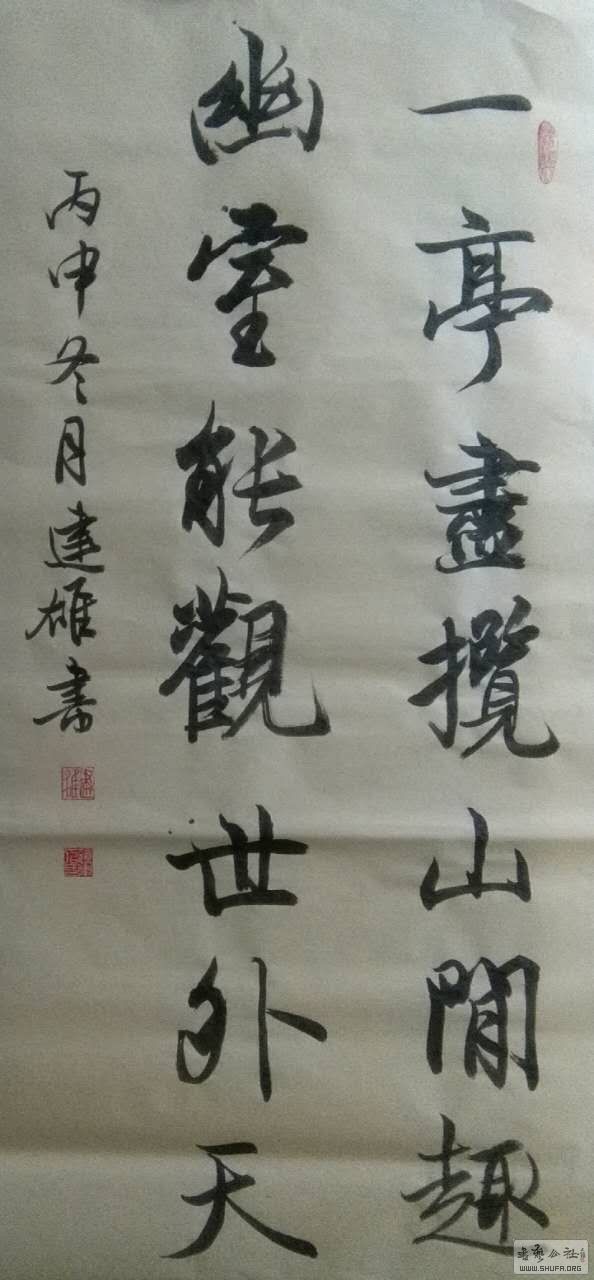 一亭盡攬山閒趣
幽室能觀世外天
丙申冬月達雄書
書藝公社
WWW.SHUFA.ORG